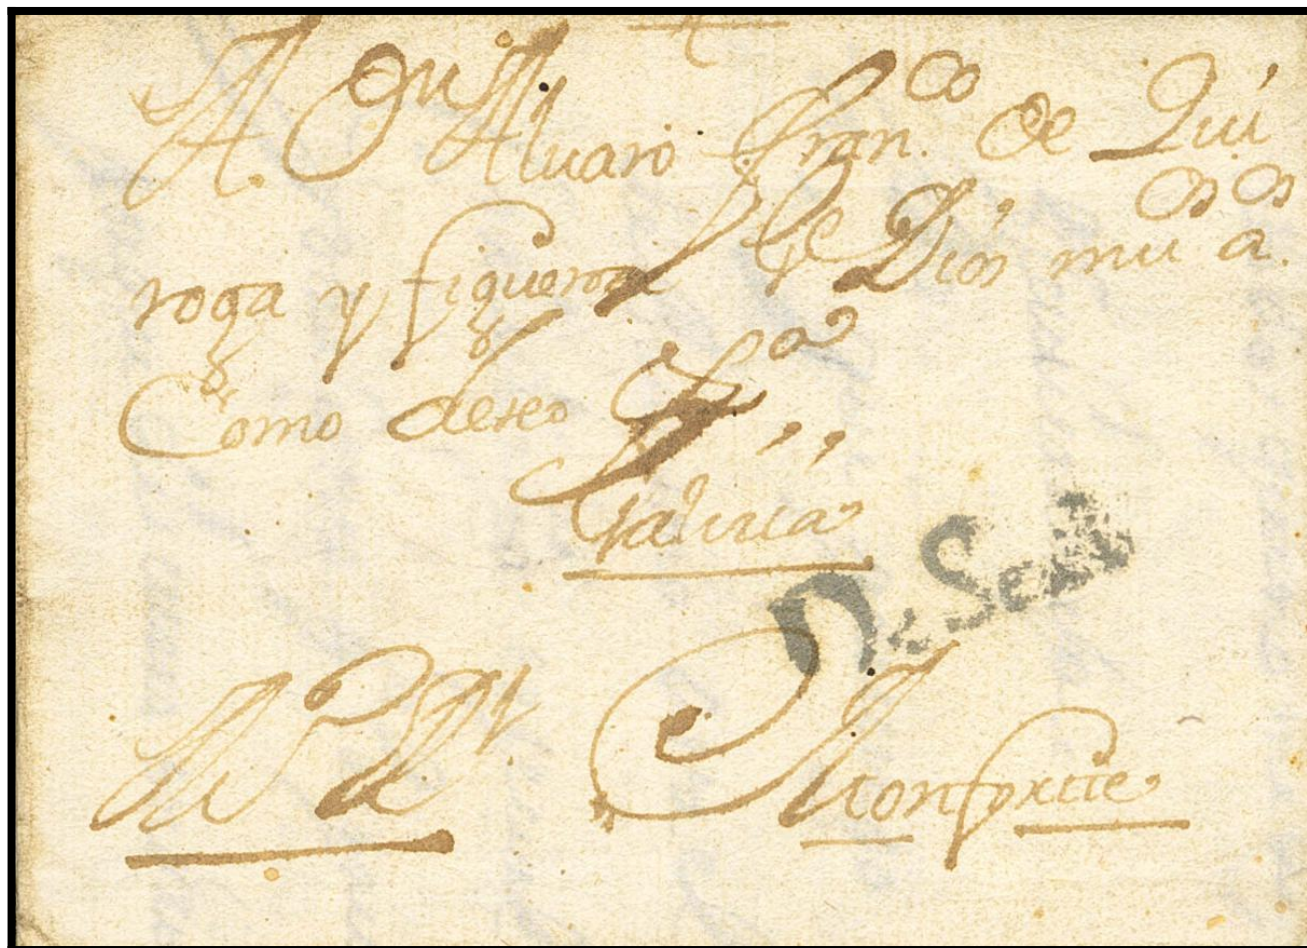 A Dn Alvaro Fran.co de Qui
roga y figueroa ge Dios mu.os a.os
Como deseo
Galicia
De Sevi
Monforte